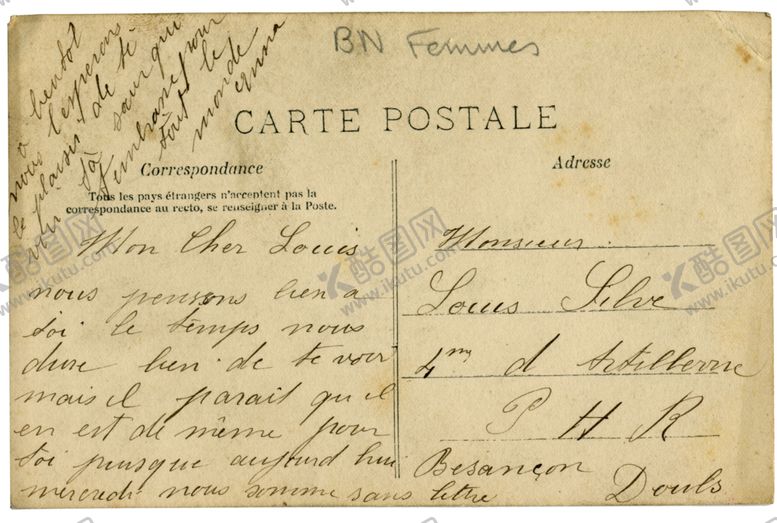 BN Femmes
CARTE POSTALE
Correspondance
Tous les pays étrangers n'acceptent pas la
correspondance au recto, se renseigner à la Poste.
Adresse
Mon Cher Louis
nous pensons bien a
toi le temps nous
dure bien de te voir
mais il parait qu il
en est de même pour
toi puisque aujourd hui
mercredi nous somme sans lettre
a bientot
nous l'esperons
le plaisir de te
voir
sa soeur qui
t'embrasse pour
tout le
monde
Anna
Monsieur
Louis Silve
4me d Artillerie
P H R
Besançon
Doubs
酷图网
www.ikutu.com